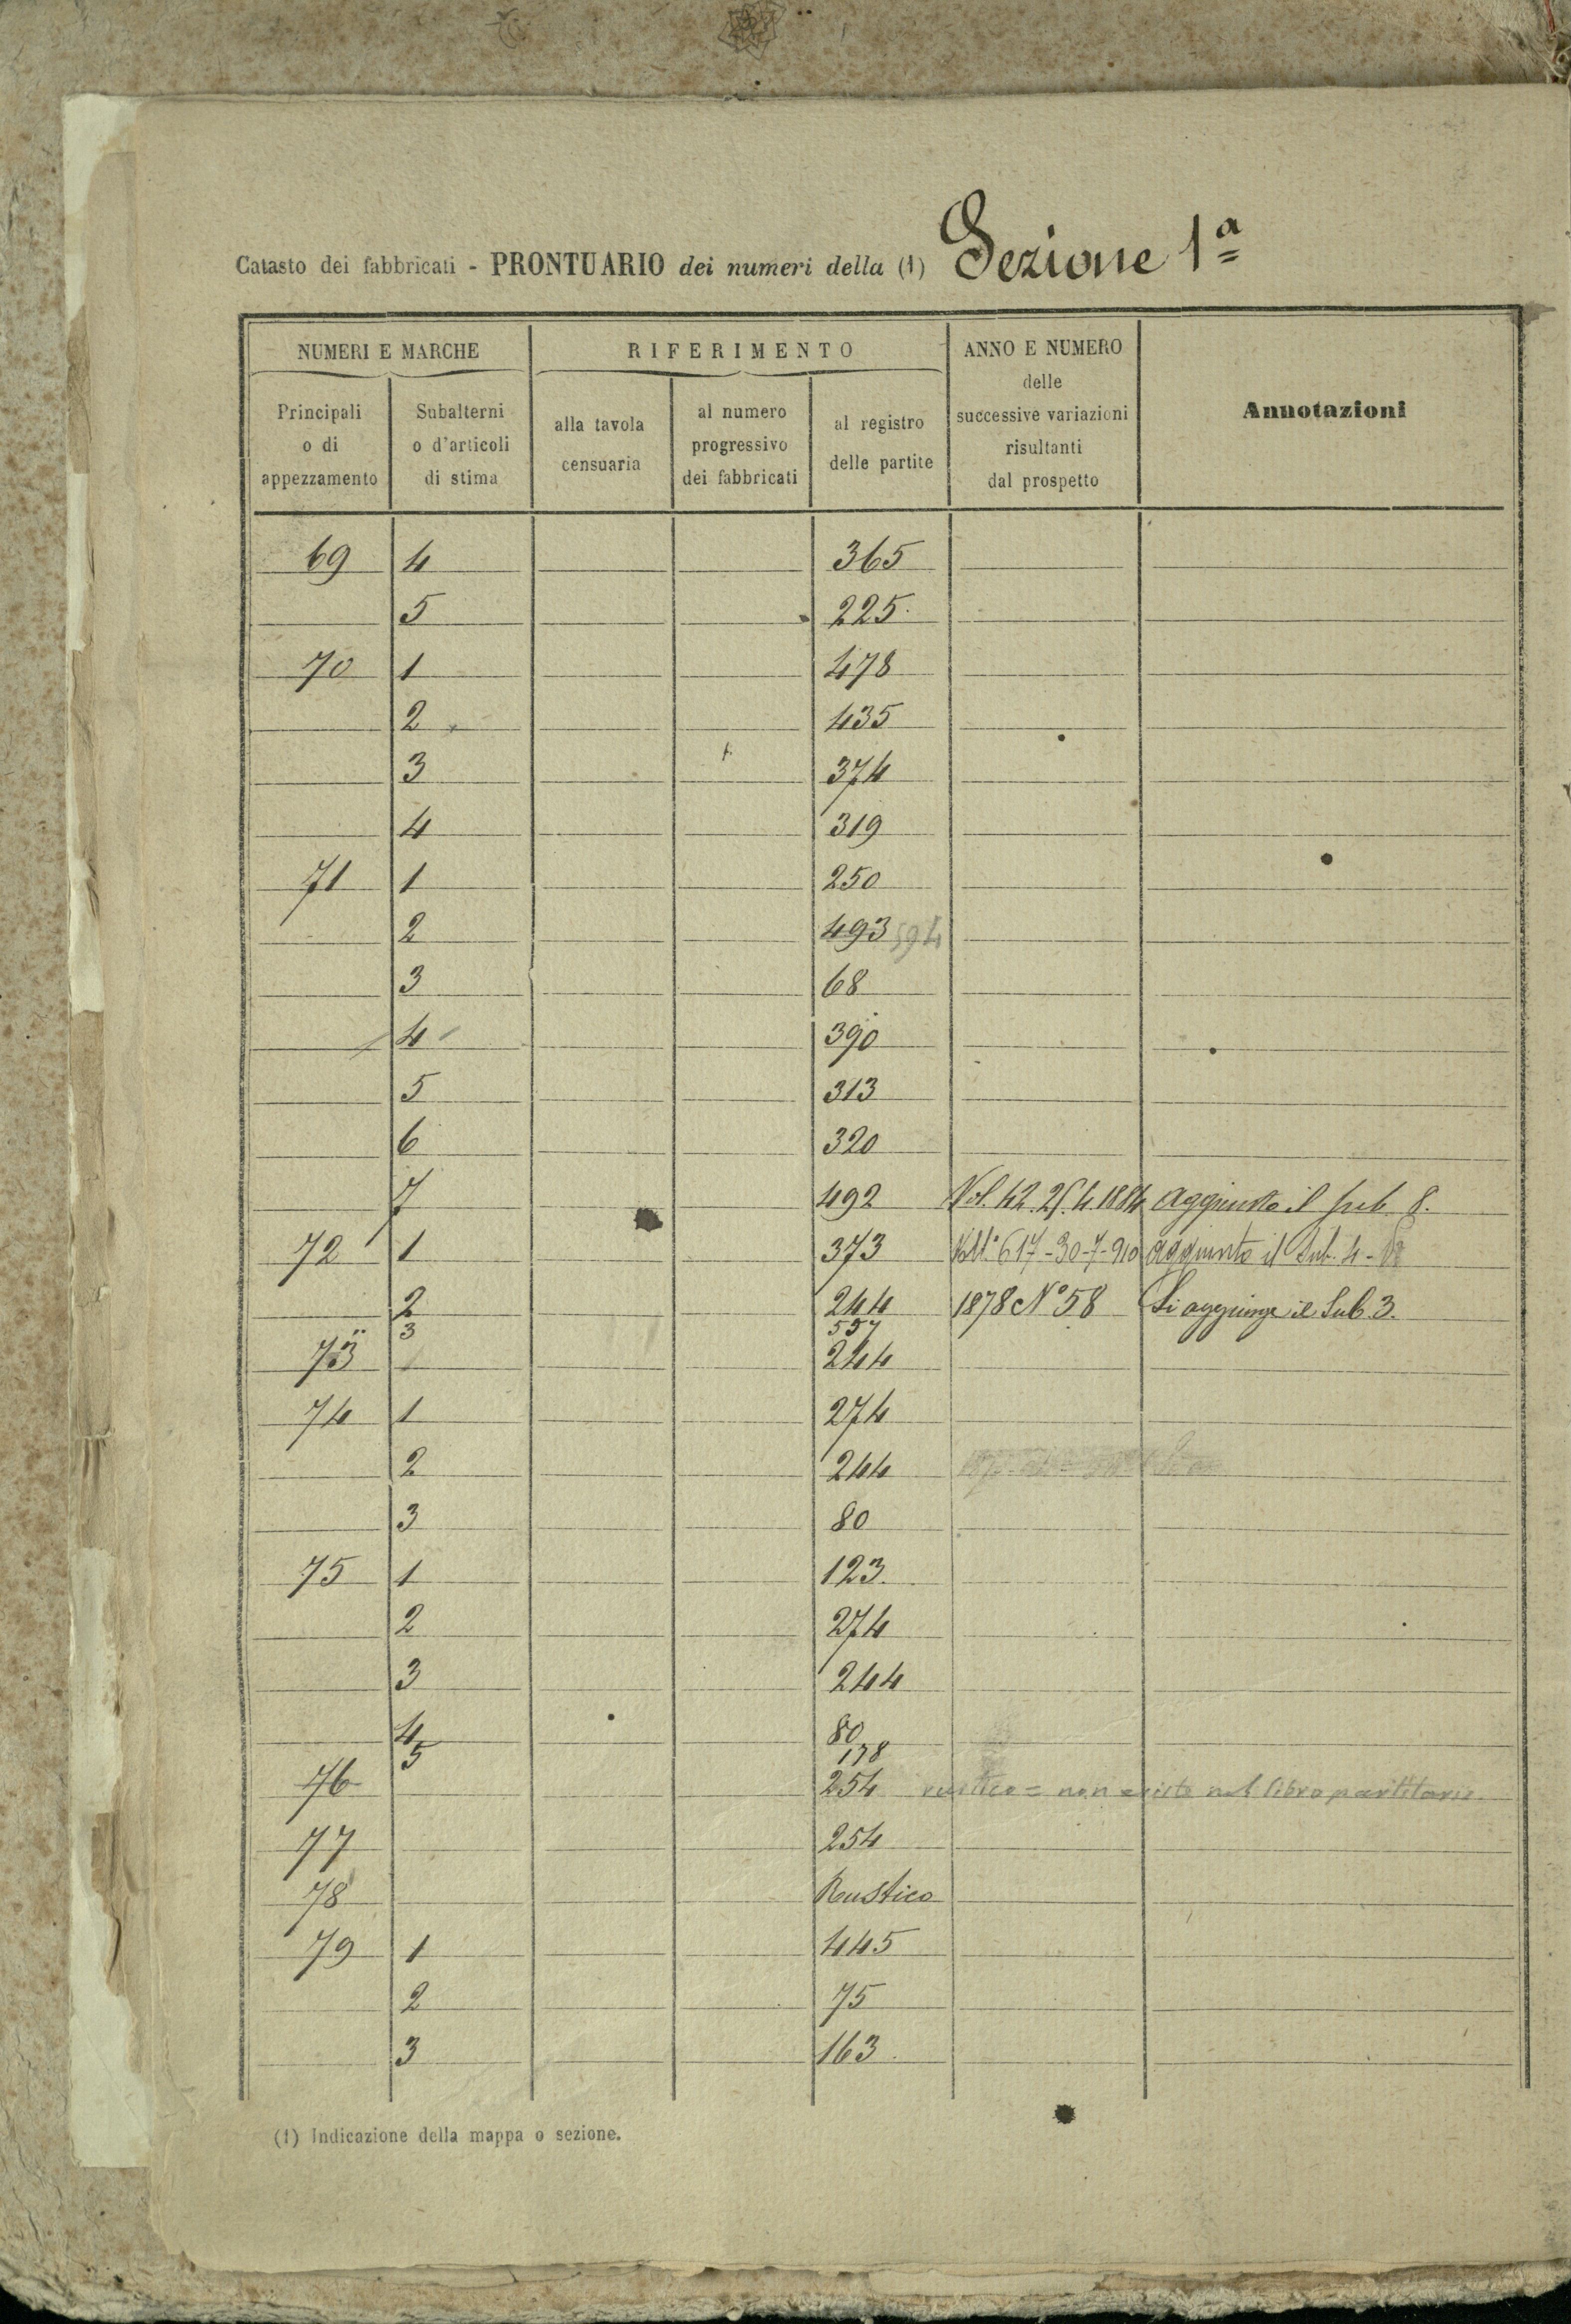 Catasto dei fabbricati - PRONTUARIO dei numeri della (1) Sezione 1ª
NUMERI E MARCHE
RIFERIMENTO
ANNO E NUMERO
delle
successive variazioni
risultanti
dal prospetto
Annotazioni
Principali
o di
appezzamento
Subalterni
o d'articoli
di stima
alla tavola
censuaria
al numero
progressivo
dei fabbricati
al registro
delle partite
69 4 365
5 225
70 1 478
2 435
3 374
4 319
71 1 250
2 493 594
3 68
4 390
5 313
6 320
7 492 Vol. 42. 4.1884 aggiunto il sub 8.
72 1 373 617-30-7-910 aggiunto il Sub. 4
2 244 1878 N° 58 Si aggiunge il Sub 3.
3 557
73 244
74 1 274
2 244
3 80
75 1 123
2 274
3 244
4 80
5 178
76 254 rustico = non esiste nel libro partitario
77 254
78 Rustico
79 1 445
2 75
3 163
(1) Indicazione della mappa o sezione.